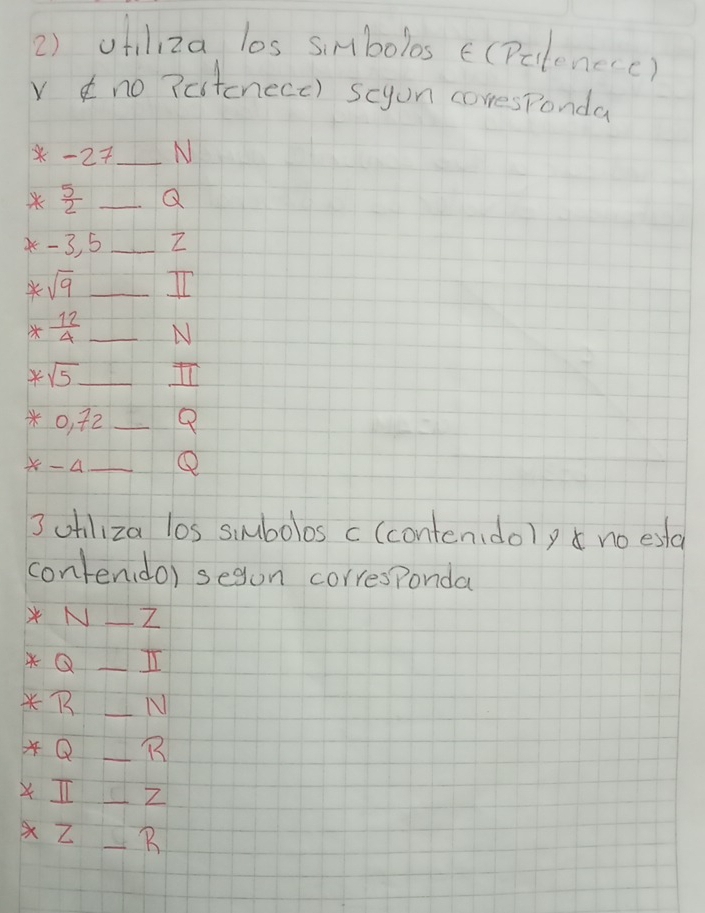 2) utiliza los simbolos ∈ (Pertenece)
y ∉ no Pertenece) segun corresponda
* -27 ___ N
* 5/2 ___ Q
* -3,5 ___ Z
* √9 ___ II
* 12/4 ___ N
* √5 ___ II
* 0,72 ___ Q
* -4 ___ Q
3 utiliza los simbolos ⊂ (contenido) y ⊄ no esta
contenido) segun corresponda
* N __ Z
* Q __ II
* R __ N
* Q __ R
* II __ Z
* Z __ R